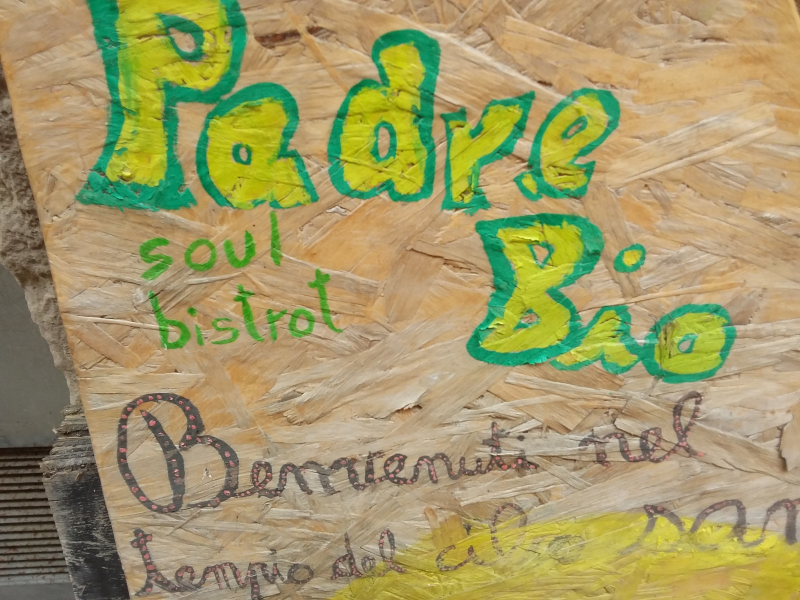 Padre
Bio
soul
bistrot
Benvenuti nel
tempio del cibo san